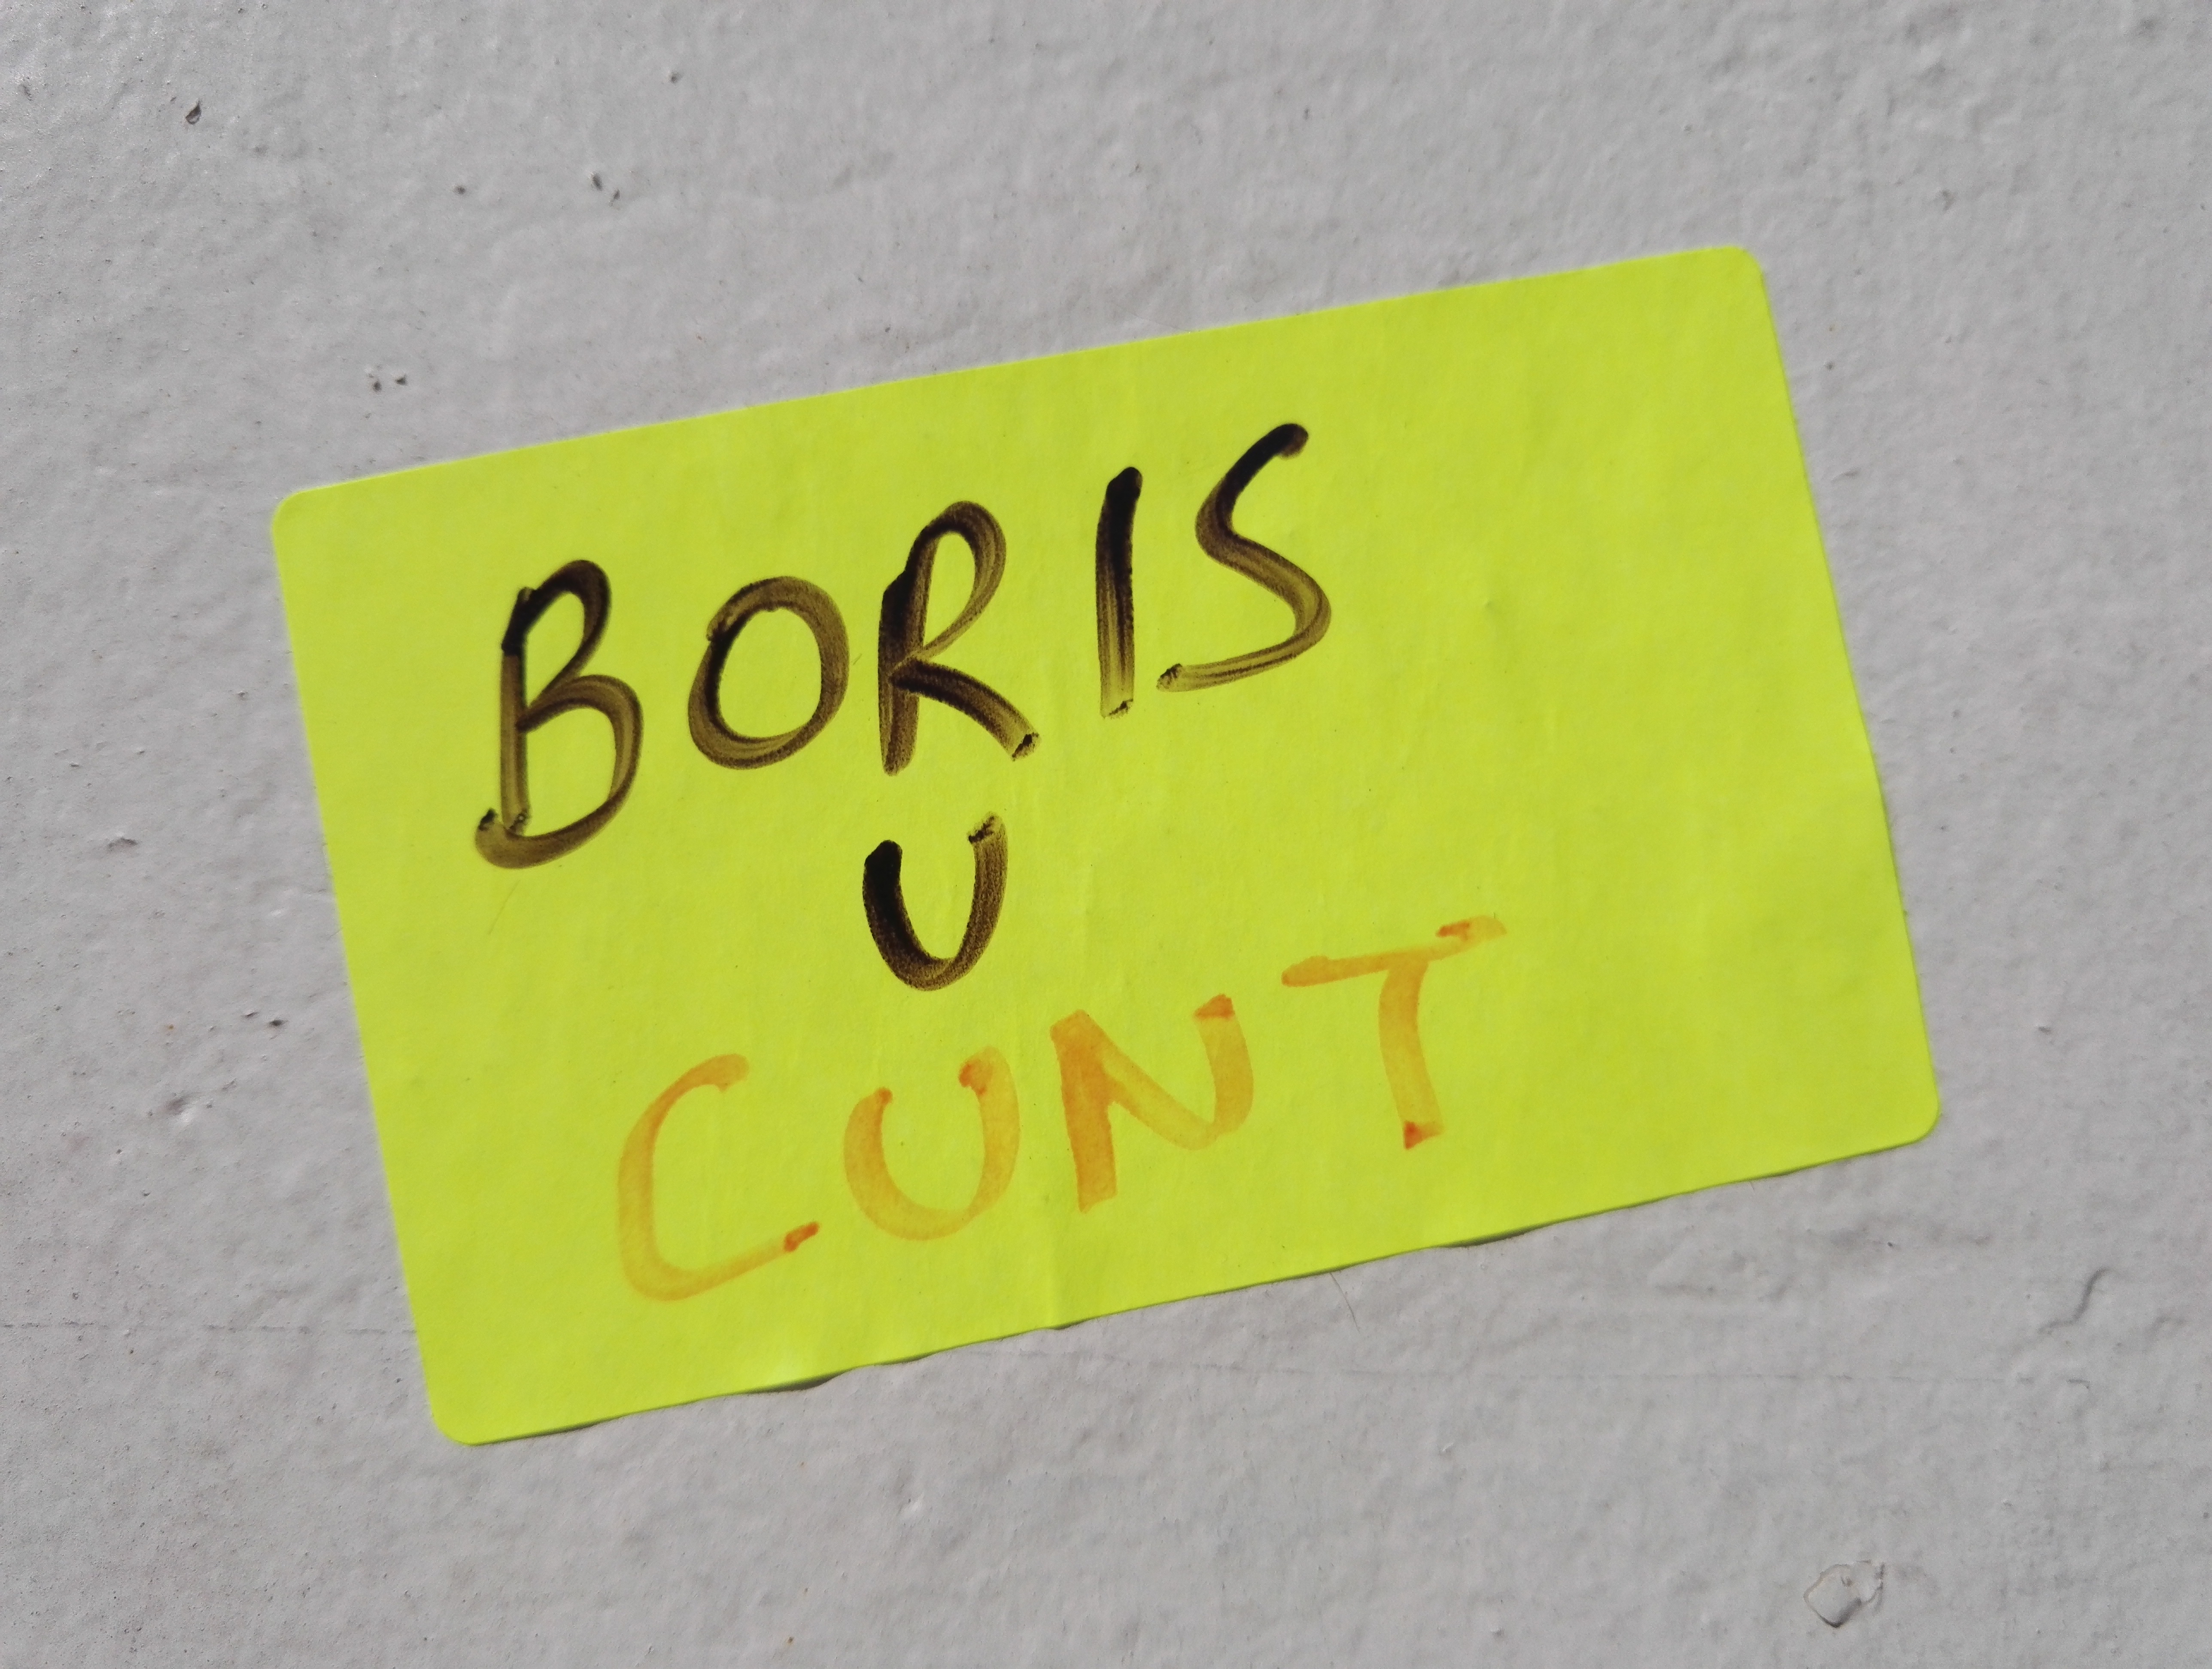 BORIS
U
CUNT